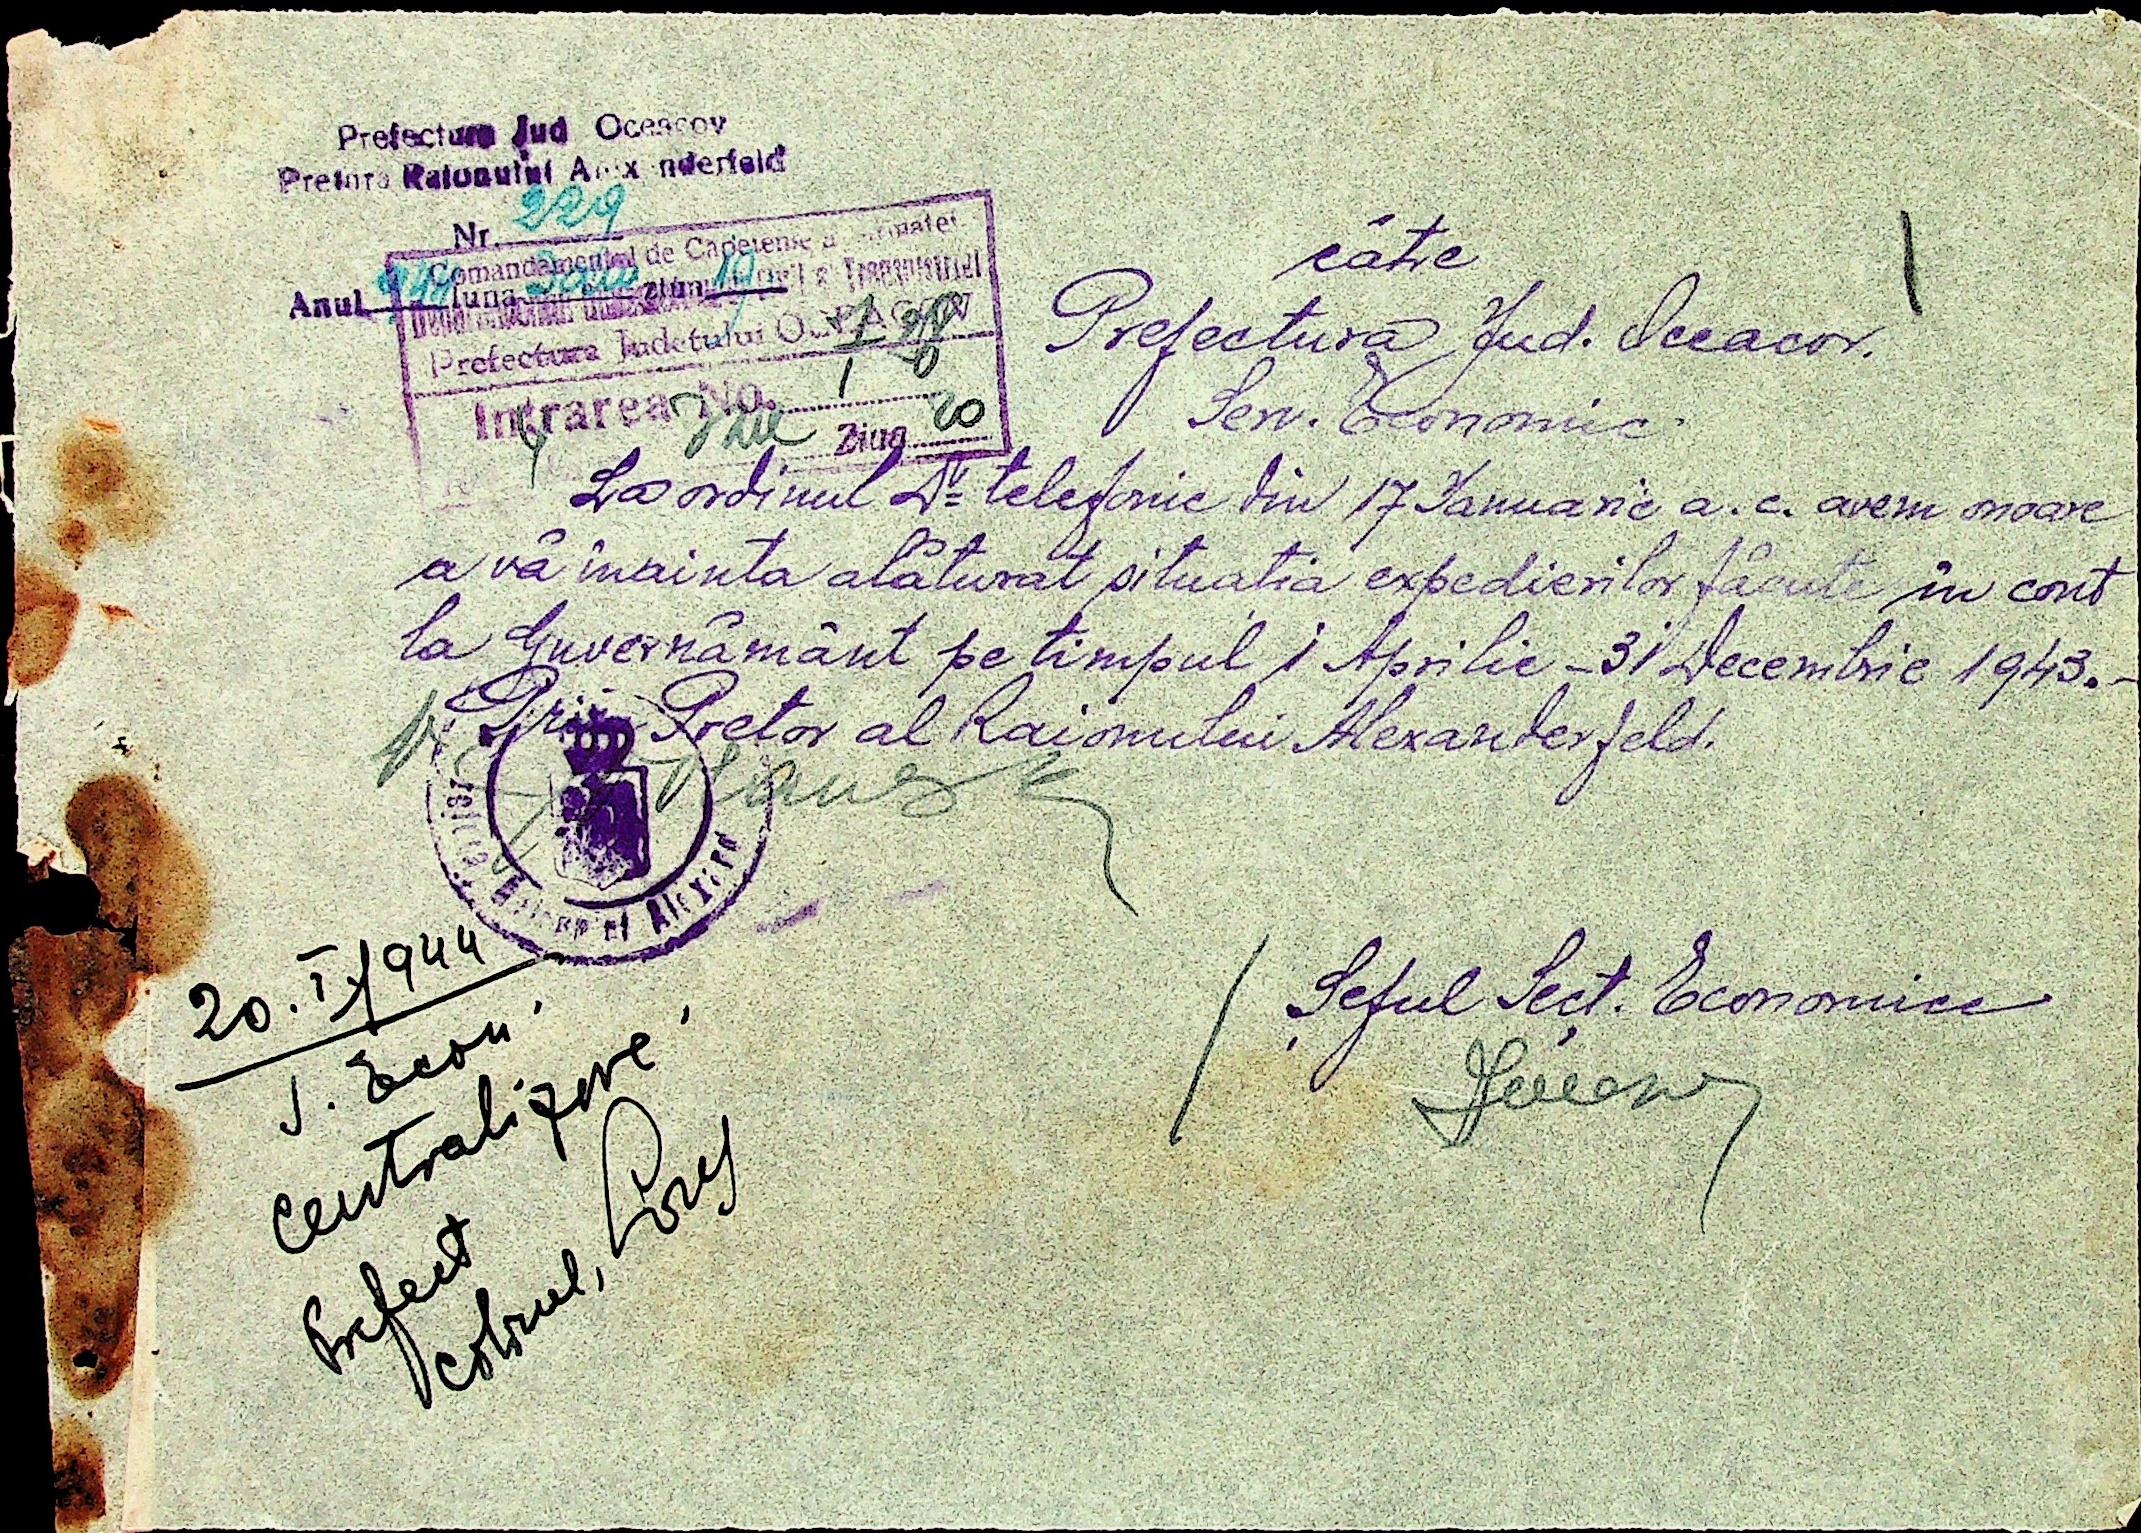 Prefectura Jud Oceacov
Pretura Raionului Alexanderfeld
Nr. 229
Anul 944 luna ziua 19
Comandamentul de Căpetenie a Armatei
Prefectura Județului OCEACOV
Intrarea No.
Ziua 20
către
Prefectura Jud. Oceacov.
Serv. Economic.
La ordinul Dv. telefonic din 17 Ianuarie a.c. avem onoare
a vă inainta alăturat situatia expedierilor făcute în cont
la Guvernământ pe timpul 1 Aprilie – 31 Decembrie 1943.–
Prim Pretor al Raionului Alexanderfeld.
20.I/944
S. Econ.
centralizare
Prefect
Colonel,
Șeful Secț. Economice